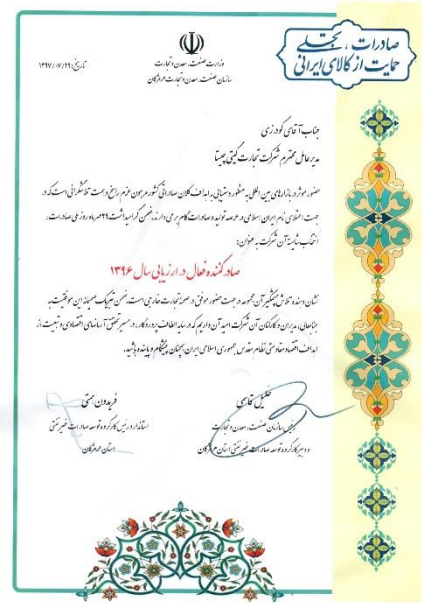 صادرات، تجلی
حمایت از کالای ایرانی
وزارت صنعت، معدن و تجارت
سازمان صنعت، معدن و تجارت هرمزگان
تاریخ: ۱۳۹۷/۰۷/۲۹
جناب آقای گودرزی
مدیرعامل محترم شرکت تجارت گیتی چیستا
حضور موثر در بازارهای بین المللی به منظور دستیابی به اهداف کلان صادراتی کشور مرهون عزم راسخ و همت تلاشگرانی است که در
جهت اعتلای نام ایران اسلامی در عرصه تولید و صادرات گام بر می دارند، ضمن گرامیداشت ۲۹ مهرماه روز ملی صادرات،
انتخاب شایسته آن شرکت به عنوان:
صادرکننده فعال در ارزیابی سال ۱۳۹۶
نشان دهنده تلاش پیگیر آن مجموعه در جهت حضور موفق در صحنه تجارت خارجی است. ضمن تبریک صمیمانه این موفقیت به
جنابعالی، مدیران و کارکنان آن شرکت امید آن داریم که در سایه الطاف پروردگار، در مسیر تحقق آرمانهای اقتصادی و تبعیت از
اهداف اقتصاد مقاومتی نظام مقدس جمهوری اسلامی ایران، همچنان پیشگام و پاینده باشید.
خلیل قاسمی
رئیس سازمان صنعت، معدن و تجارت
و دبیر کارگروه توسعه صادرات غیر نفتی استان هرمزگان
فریدون همتی
استاندار و رئیس کارگروه توسعه صادرات غیر نفتی
استان هرمزگان